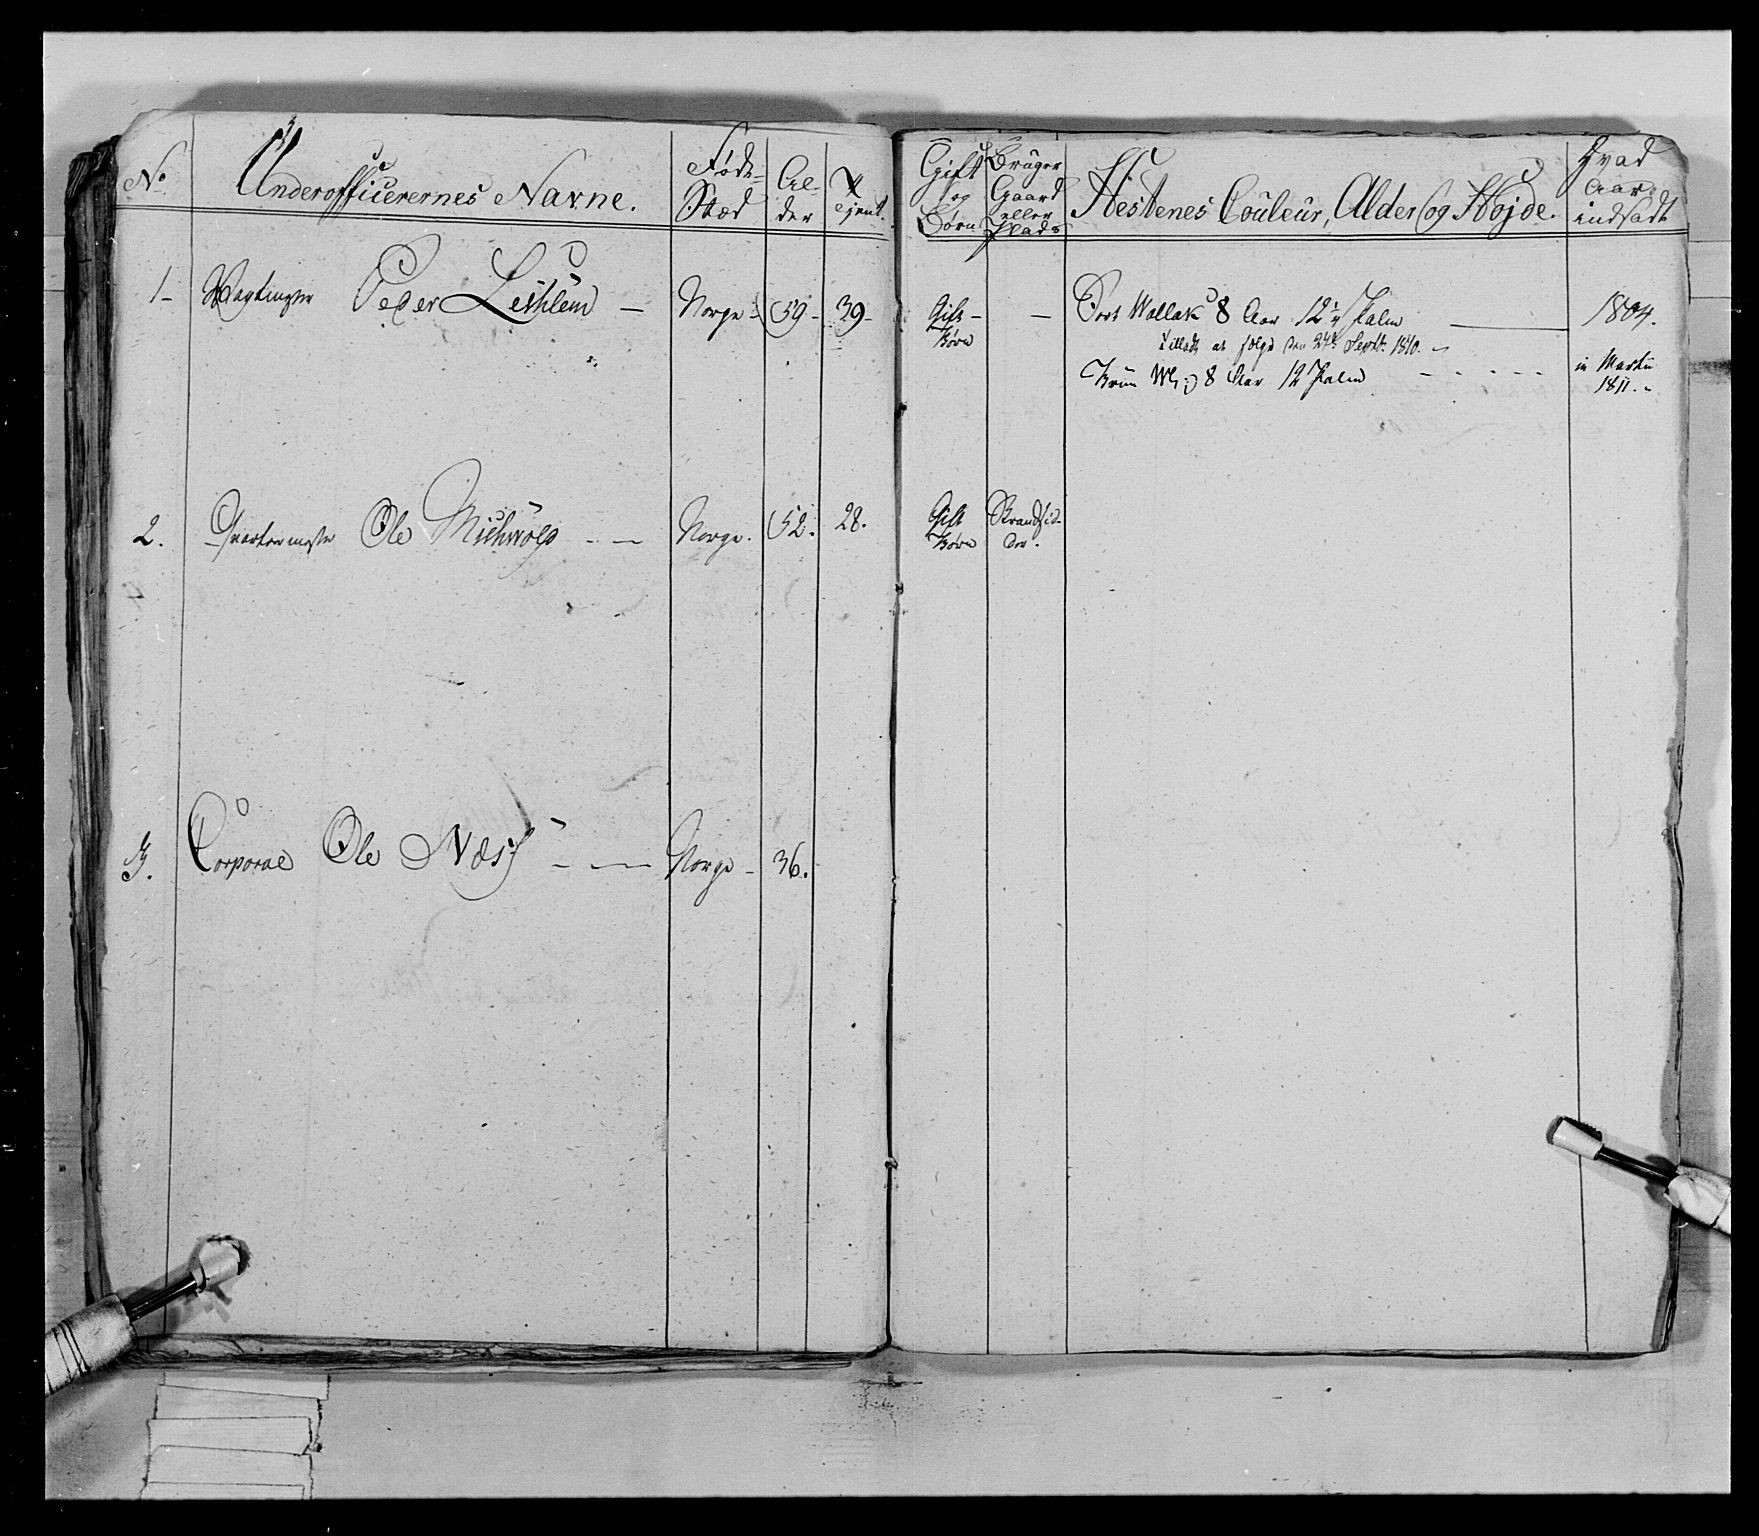 No Underofficerernes Navne. Føde- Stæd Al- der Tjent. Gift og Børn Bruger Gaard eller Plads Hestenes Couleur, Alder og Højde. Hvad Aar indsadt
1- Wagtmester Peder Leihlem - Norge- 59- 39- Gift- Børn - Sort Wallak 8 Aar 12 1/4 Palm 1804.
Tilladt at sælge den 24de Septr. 1810. -
Brun W: 8 Aar 12 Palm - - - - - in Martii 1811. -
2. Qvarteermester Ole - - Norge. 52. 28. Gift Børn Strandsid- der.
3. Corporal Ole Næss - - Norge - 36.